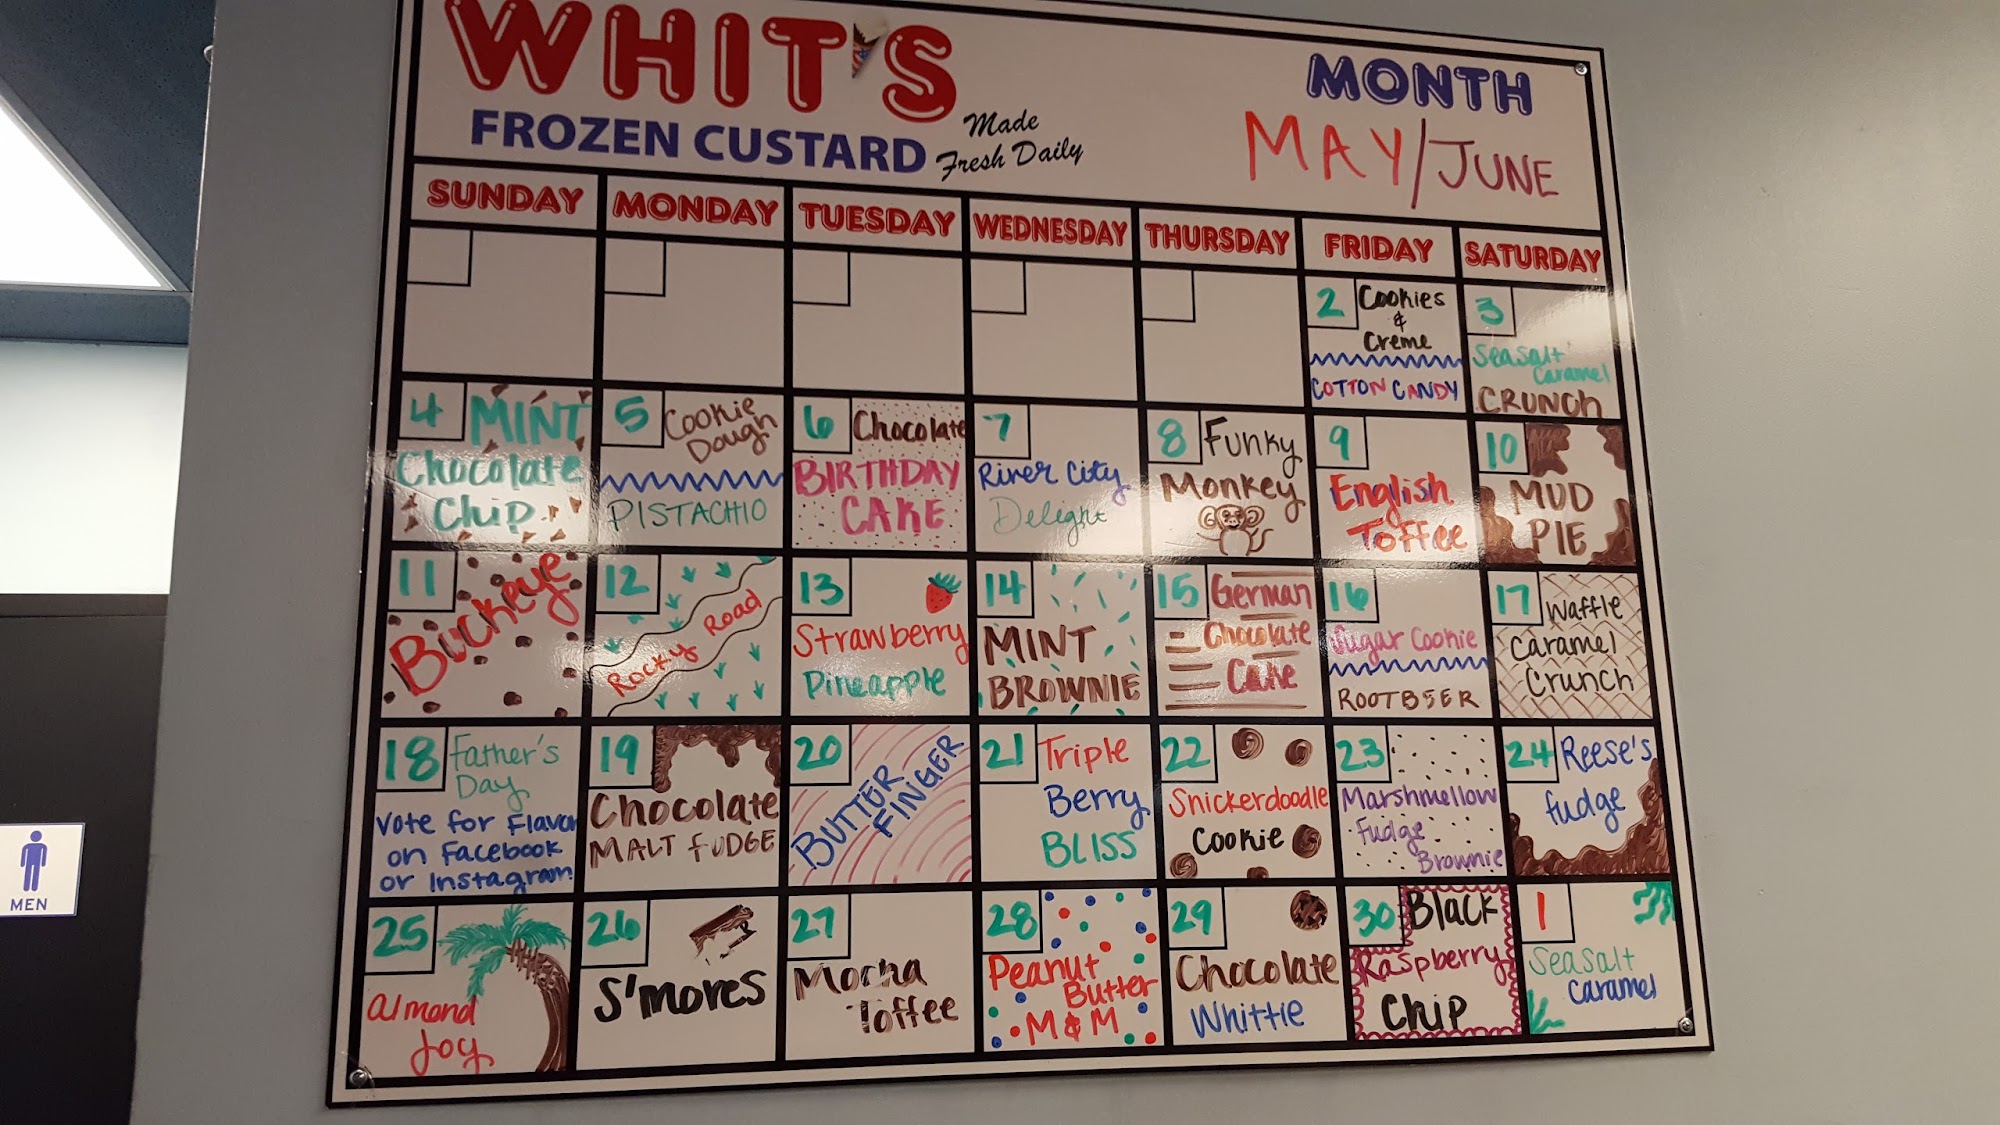 WHIT'S
FROZEN CUSTARD
Made
Fresh Daily
MONTH
MAY/JUNE
SUNDAY MONDAY TUESDAY WEDNESDAY THURSDAY FRIDAY SATURDAY
2 Cookies
&
Creme
COTTON CANDY
3
Seasalt
Caramel
CRUNCH
4 MINT
Chocolate
Chip
5 Cookie
Dough
PISTACHIO
6 Chocolate
BIRTHDAY
CAKE
7
River City
Delight
8 Funky
Monkey
9
English
Toffee
10
MUD
PIE
11
Buckeye
12
Rocky Road
13
Strawberry
Pineapple
14
MINT
BROWNIE
15 German
Chocolate
Cake
16
Sugar Cookie
ROOTBEER
17 Waffle
Caramel
Crunch
18 Father's
Day
Vote for Flavor
on Facebook
or Instagram
19
Chocolate
MALT FUDGE
20
BUTTER
FINGER
21 Triple
Berry
BLISS
22
Snickerdoodle
Cookie
23
Marshmellow
Fudge
Brownie
24 Reese's
fudge
25
Almond
Joy
26
S'mores
27
Mocha
Toffee
28
Peanut
Butter
M&M
29
Chocolate
Whittie
30 Black
Raspberry
Chip
1
Seasalt
Caramel
MEN